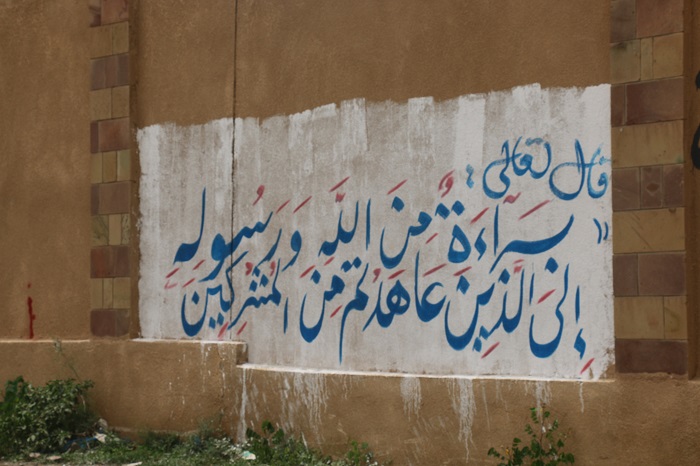 قال تعالى :
" بَرَآءَةٌ مِّنَ اللَّهِ وَرَسُولِهِ
إِلَى الَّذِينَ عَاهَدتُّم مِّنَ المُشْرِكِينَ